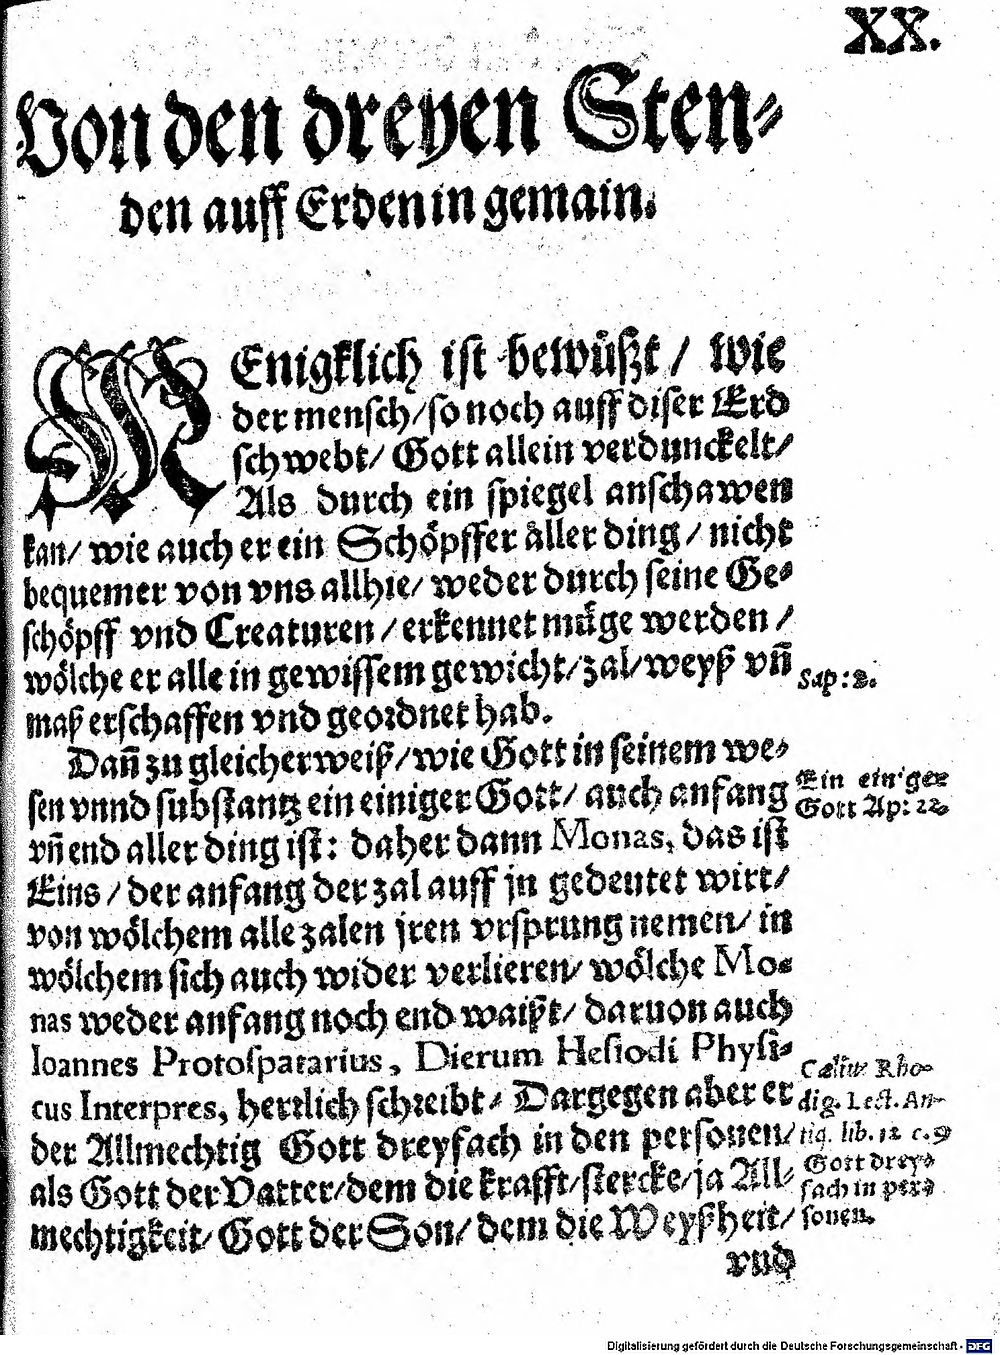 XX.
Von den dreyen Sten⸗
den auff Erden in gemain.
MEnigklich ist bewüßt / wie
der mensch / so noch auff diser Erd
schwebt / Gott allein verdunckelt /
Als durch ein spiegel anschawen
kan / wie auch er ein Schöpffer aller ding / nicht
bequemer von vns allhie / weder durch seine Ge⸗
schöpff vnd Creaturen / erkennet müge werden /
wölche er alle in gewissem gewicht / zal / weyß vñ
maß erschaffen vnd geordnet hab.
Sap: 8.
Dañ zu gleicher weiß / wie Gott in seinem we⸗
sen vnnd substantz ein einiger Gott / auch anfang
vñ end aller ding ist: daher dann Monas, das ist
Eins / der anfang der zal auff jn gedeutet wirt /
von wölchem alle zalen jren vrsprung nemen / in
wölchem sich auch wider verlieren / wölche Mo⸗
nas weder anfang noch end waißt / daruon auch
Ioannes Protospatarius, Dierum Hesiodi Physi⸗
cus Interpres, herrlich schreibt / Dargegen aber er
der Allmechtig Gott dreyfach in den personen /
als Gott der Vatter / dem die krafft / stercke / ja All⸗
mechtigkeit / Gott der Son / dem die Weyßheit /
vnd
Ein einiger
Gott Ap: 22.
Cælius Rho-
dig. Lect. An-
tiq. lib. 12 c. 9
Gott drey⸗
fach in per⸗
sonen.
Digitalisierung gefördert durch die Deutsche Forschungsgemeinschaft - DFG